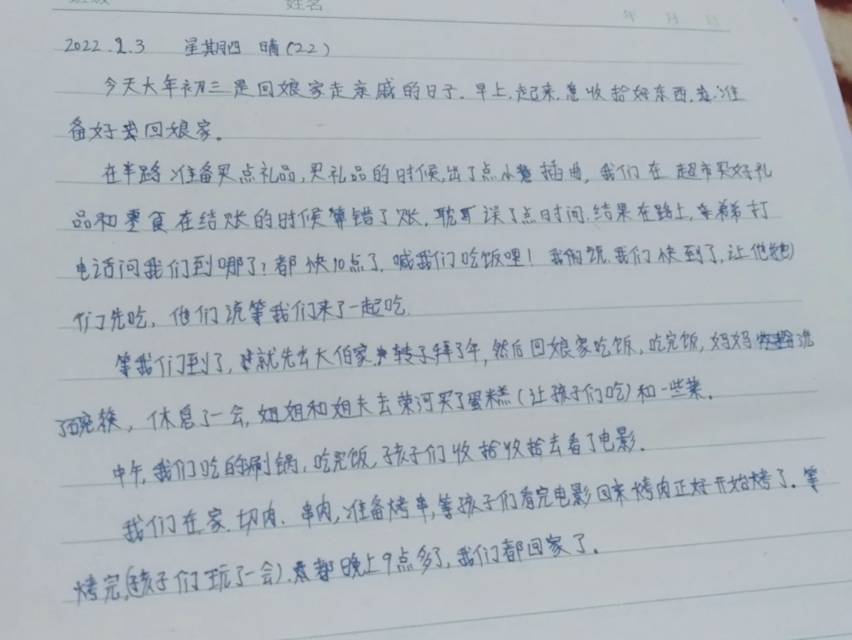 姓名
年 月 日
2022.2.3 星期四 晴(22)
今天大年初三是回娘家走亲戚的日子.早上,起来,急收拾好东西,准
备好要回娘家。
在半路准备买点礼品,买礼品的时候,出了点小插曲,我们在超市买好礼
品和零食在结账的时候算错了账,耽误了点时间,结果在路上,弟弟打
电话问我们到哪了?都快10点了,喊我们吃饭哩!我们说,我们快到了,让他
们先吃,他们说等我们来了一起吃.
等我们到了,就先去大伯家转了拜了年,然后回娘家吃饭,吃完饭,妈妈洗
了碗筷,休息了一会,姐姐和姐夫去荣河买了蛋糕(让孩子们吃)和一些菜.
中午,我们吃的涮锅,吃完饭,孩子们收拾收拾去看了电影.
我们在家.切肉、串肉,准备烤串,等孩子们看完电影回来烤肉正好开始烤了.等
烤完,(孩子们玩了一会).都晚上9点多了,我们都回家了.